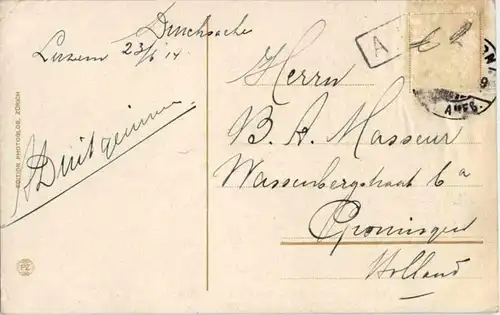 Drucksache
Luzern 23/6 14
A
Herrn
B. A. Masseur
Wassenbergstraat 6a
Groningen
Holland
EDITION PHOTOGLOB, ZÜRICH
PZ